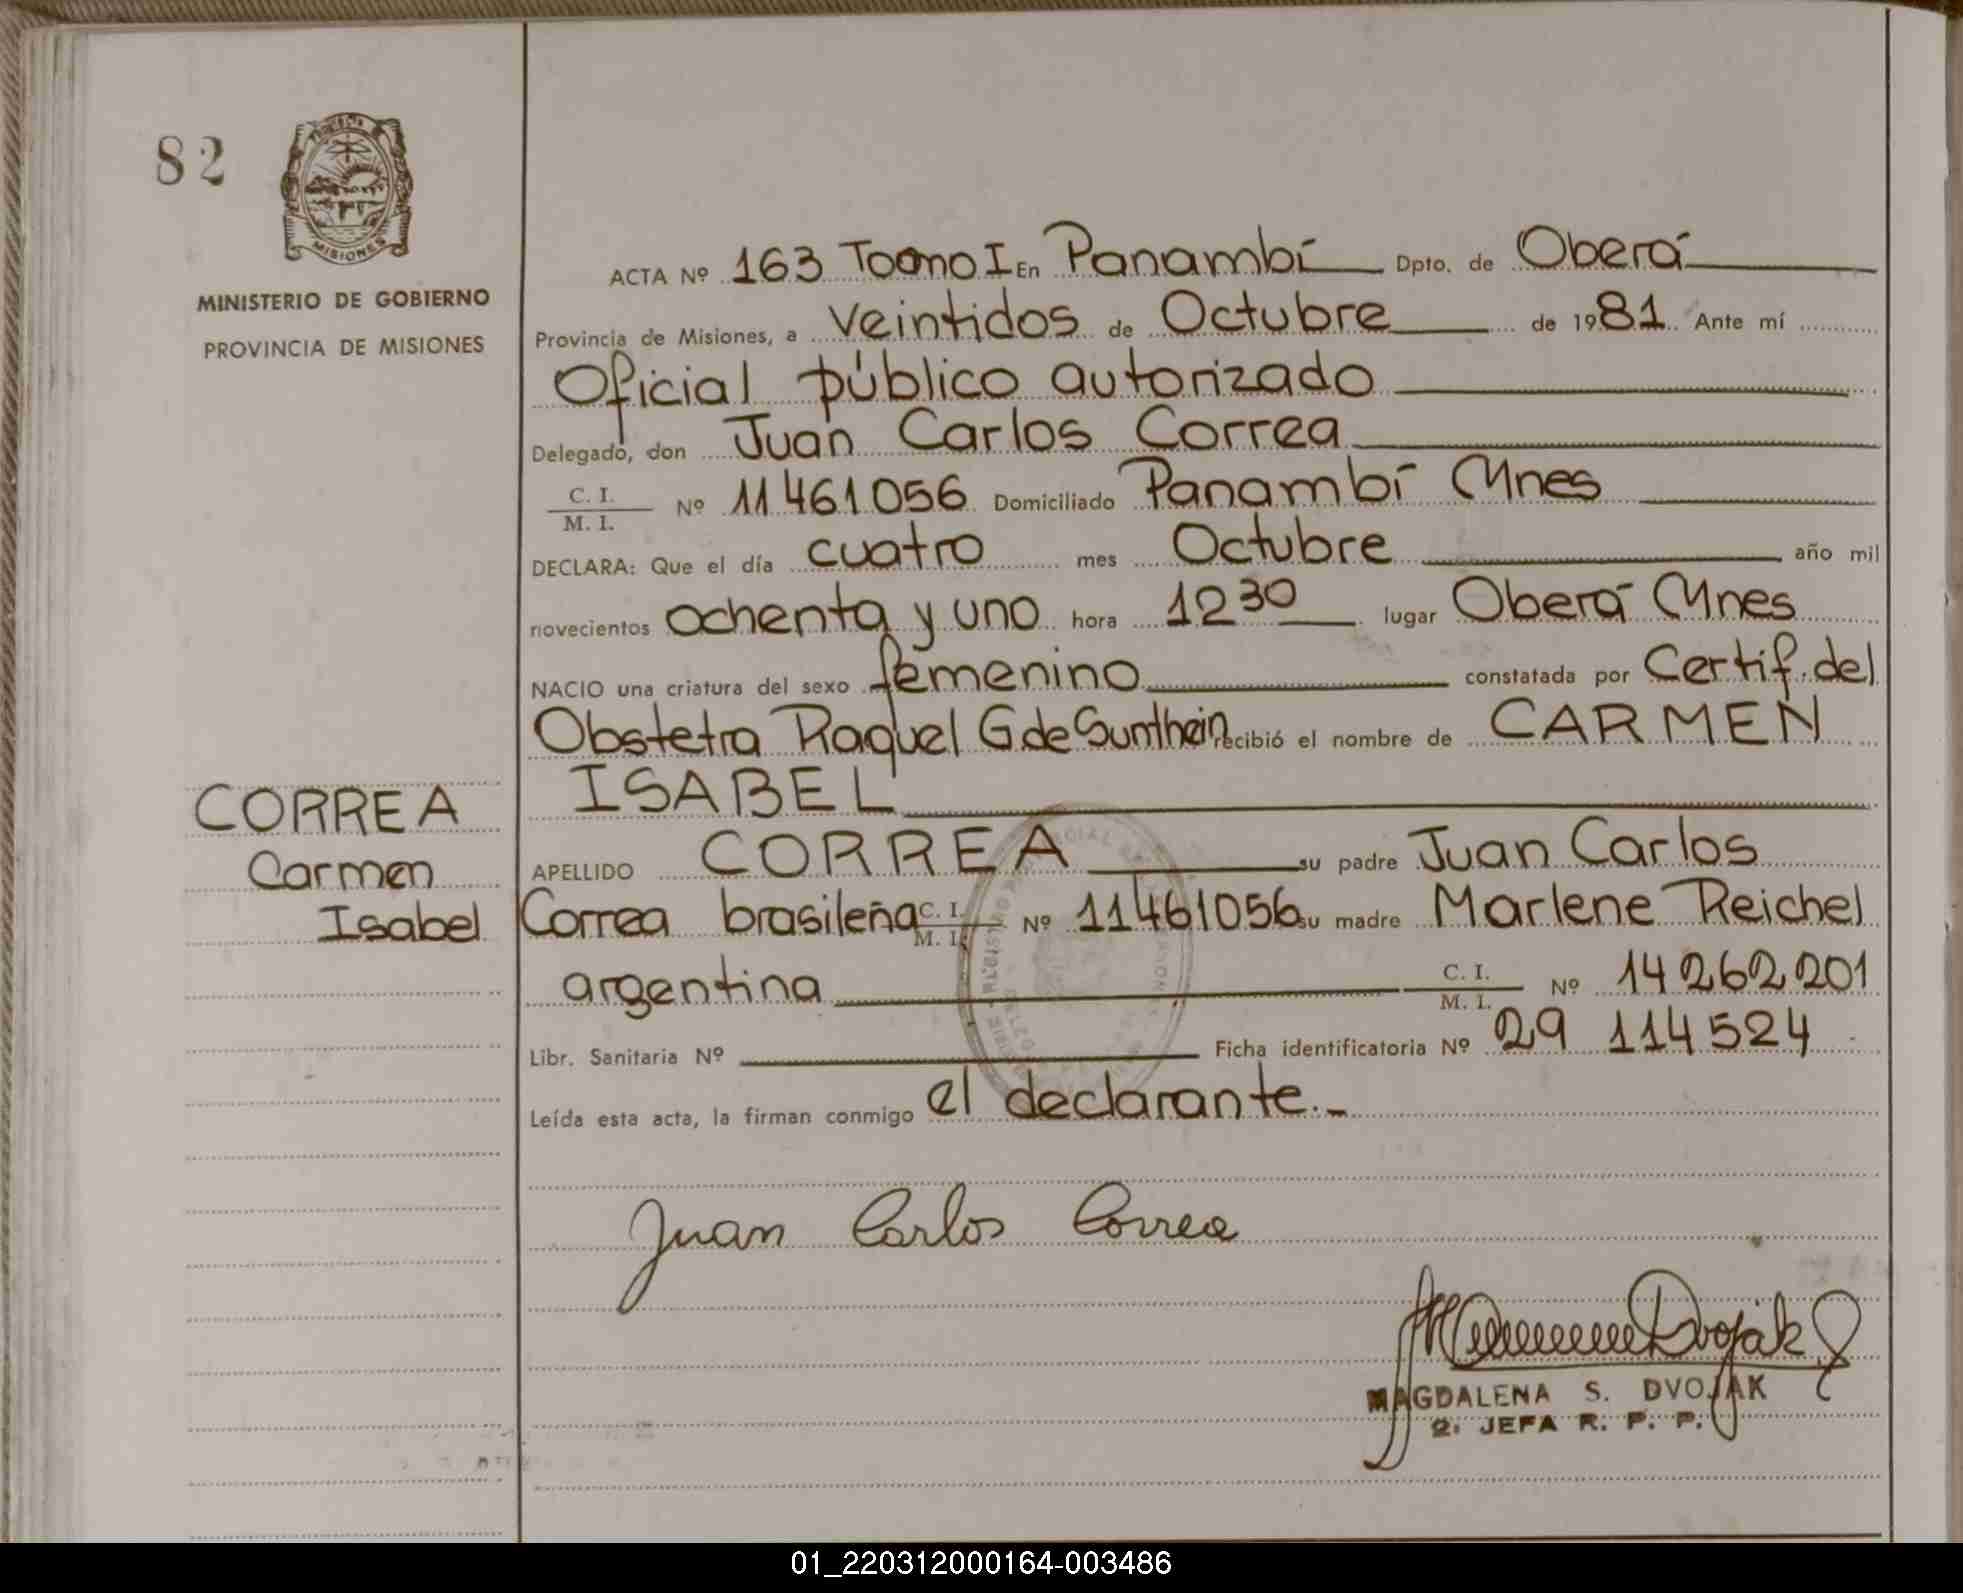 82
MISIONES
MINISTERIO DE GOBIERNO
PROVINCIA DE MISIONES
ACTA Nº 163 Toomo I En Panambí Dpto. de Oberá
Provincia de Misiones, a veintidos de Octubre de 1981 Ante mí
Oficial público autorizado
Delegado, don Juan Carlos Correa
C. I.
M. I. Nº 11461056 Domiciliado Panambí Mnes
DECLARA: Que el día cuatro mes Octubre año mil
novecientos ochenta y uno hora 12 30 lugar Oberá Mnes
NACIO una criatura del sexo femenino constatada por Certif. del
Obstetra Raquel G. de Sunthein recibió el nombre de CARMEN
ISABEL
CORREA
Carmen
Isabel
APELLIDO CORREA su padre Juan Carlos
Correa brasileña C. I.
M. I. Nº 11461056 su madre Marlene Reichel
argentina C. I.
M. I. Nº 14262201
Libr. Sanitaria Nº Ficha identificatoria Nº 29 114524
Leída esta acta, la firman conmigo el declarante.-
Juan Carlos Correa
Dvojak
MAGDALENA S. DVOJAK
2. JEFA R. P. P.
01_220312000164-003486